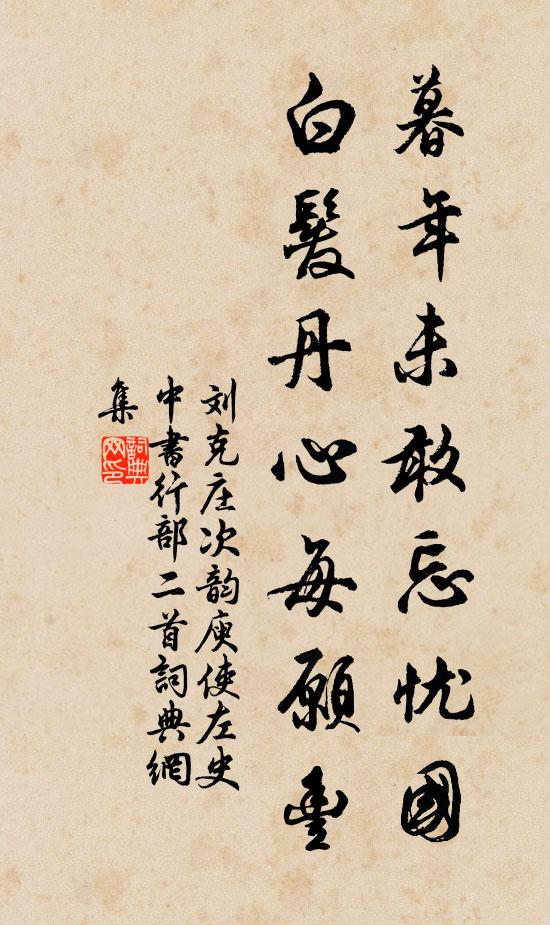 暮年未敢忘忧國
白髮丹心每願豊
刘克庄次韵庾使左史
中書行部二首詞典網
集
詞典网印